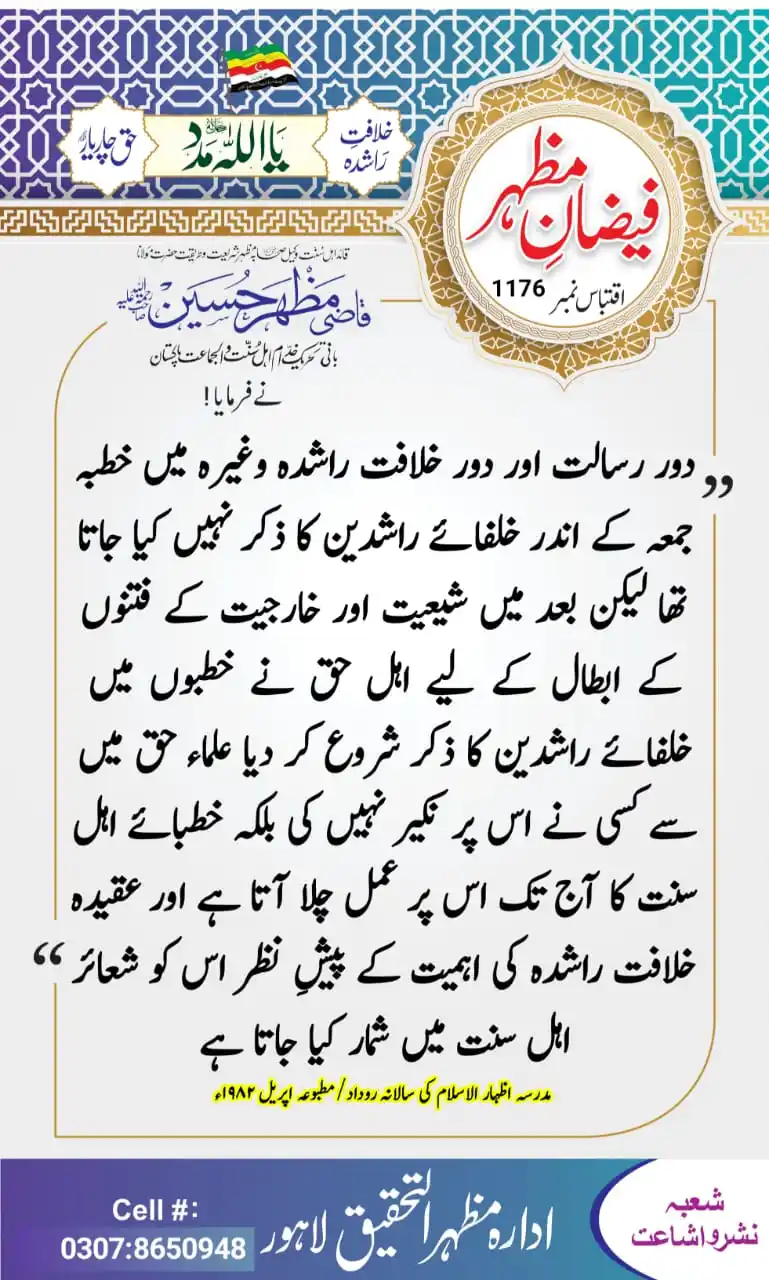 خلافتِ راشدہ
یا اللہ جل جلالہ مدد
حق چار یار
فیضانِ مظہر
اقتباس نمبر 1176
قائد اہل سنت وکیل صحابہ مظہر شریعت و طریقت حضرت مولانا
قاضی مظہر حسین رحمۃ اللہ علیہ
بانی تحریک خدام اہل سنت والجماعت پاکستان
نے فرمایا!
”دور رسالت اور دور خلافت راشدہ وغیرہ میں خطبہ
جمعہ کے اندر خلفائے راشدین کا ذکر نہیں کیا جاتا
تھا لیکن بعد میں شیعیت اور خارجیت کے فتنوں
کے ابطال کے لیے اہل حق نے خطبوں میں
خلفائے راشدین کا ذکر شروع کر دیا علماء حق میں
سے کسی نے اس پر نکیر نہیں کی بلکہ خطبائے اہل
سنت کا آج تک اس پر عمل چلا آتا ہے اور عقیدہ
خلافت راشدہ کی اہمیت کے پیشِ نظر اس کو شعائر “
اہل سنت میں شمار کیا جاتا ہے
مدرسہ اظہار الاسلام کی سالانہ روداد / مطبوعہ اپریل ۱۹۸۲ء
شعبہ
نشر و اشاعت
ادارہ مظہر التحقیق لاہور
Cell #:
0307:8650948